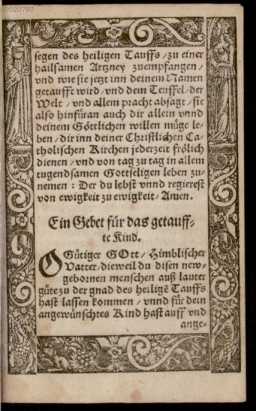 segen des heiligen Tauffs / zu einer
hailsamen Artzney zuempfangen /
vnd wie sie jetzt inn deinem Namen
getaufft wird / vnd dem Teuffel / der
Welt / vnd allem pracht absagt / sie
also hinfüran auch dir allein vnnd
deinem Göttlichen willen müge le-
ben / dir inn deiner Christlichen Ca-
tholischen Kirchen jederzeit frölich
dienen / vnd von tag zu tag in allem
tugendsamen Gottseligen leben zu-
nemen : Der du lebst vnnd regierest
von ewigkeit zu ewigkeit / Amen.
Ein Gebet für das getauff-
te Kind.
O Gütiger GOtt / Himblischer
Vatter / dieweil du disen new-
gebornen menschen auß lauter
güte zu der gnad des heiligẽ Tauffs
hast lassen kommen / vnnd für dein
angewünschtes Kind hast auff vnd
ange-